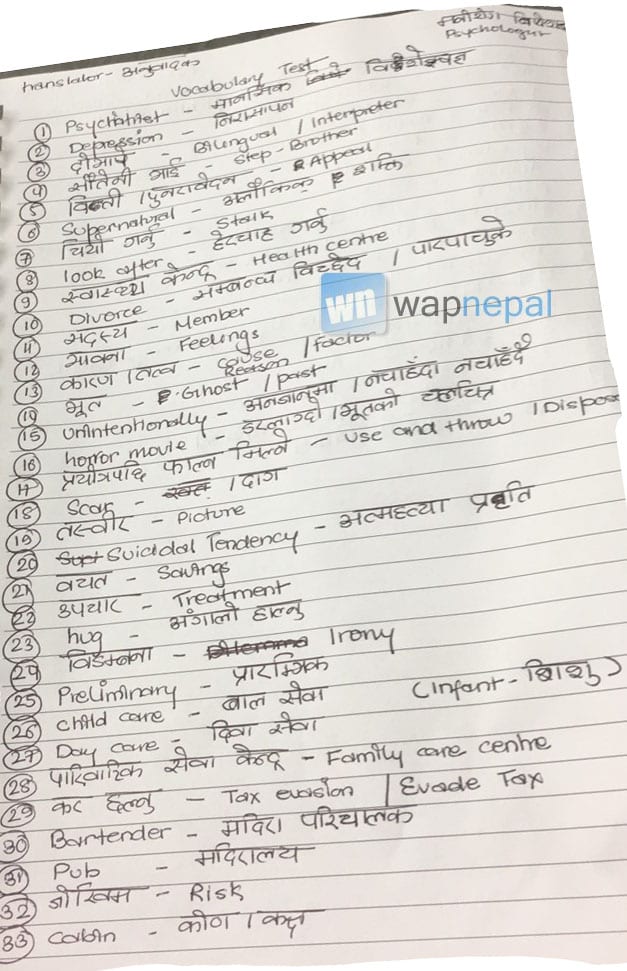 translator - अनुवादक
मनोरोग विशेषज्ञ
Psychologist
Vocabulary Test
① Psychiatrist - मानसिक विशेषज्ञ
② Depression - निरासापन
③ दोभाषे - Bilingual / Interpreter
④ सौतेनी भाई - Step-Brother
⑤ बिन्ती / पुनरावेदन - Appeal
⑥ Supernatural - अलौकिक शक्ति
⑦ चियो गर्नु - Stalk
⑧ look after - हेरचाह गर्नु
⑨ स्वास्थ्य केन्द्र - Health centre
⑩ Divorce - सम्बन्ध विच्छेद / पारपाचुके
wn wapnepal
⑪ सदस्य - Member
⑫ भावना - Feelings
⑬ कारण / तत्व - cause / Factor
Reason
⑭ भूत - Ghost / past
⑮ unintentionally - अनजानमा / नचाहँदा नचाहँदै
⑯ horror movie - डरलाग्दो / भूतको चलचित्र
⑰ प्रयोगपछि फाल्न मिल्ने - use and throw / Dispos
⑱ Scar - खत / दाग
⑲ तस्वीर - Picture
⑳ Suicidal Tendency - आत्महत्या प्रवृति
㉑ वचत - Savings
㉒ उपचार - Treatment
㉓ hug - अंगालो हाल्नु
㉔ विडम्बना - Dilemma Irony
㉕ Preliminary - प्रारम्भिक
㉖ child care - बाल सेवा (Infant - शिशु)
㉗ Day care - दिवा सेवा
㉘ पारिवारिक सेवा केन्द्र - Family care centre
㉙ कर छल्नु - Tax evasion / Evade Tax
㉚ Bartender - मदिरा परिचालक
㉛ Pub - मदिरालय
㉜ जोखिम - Risk
㉝ cabin - कोण / कक्ष